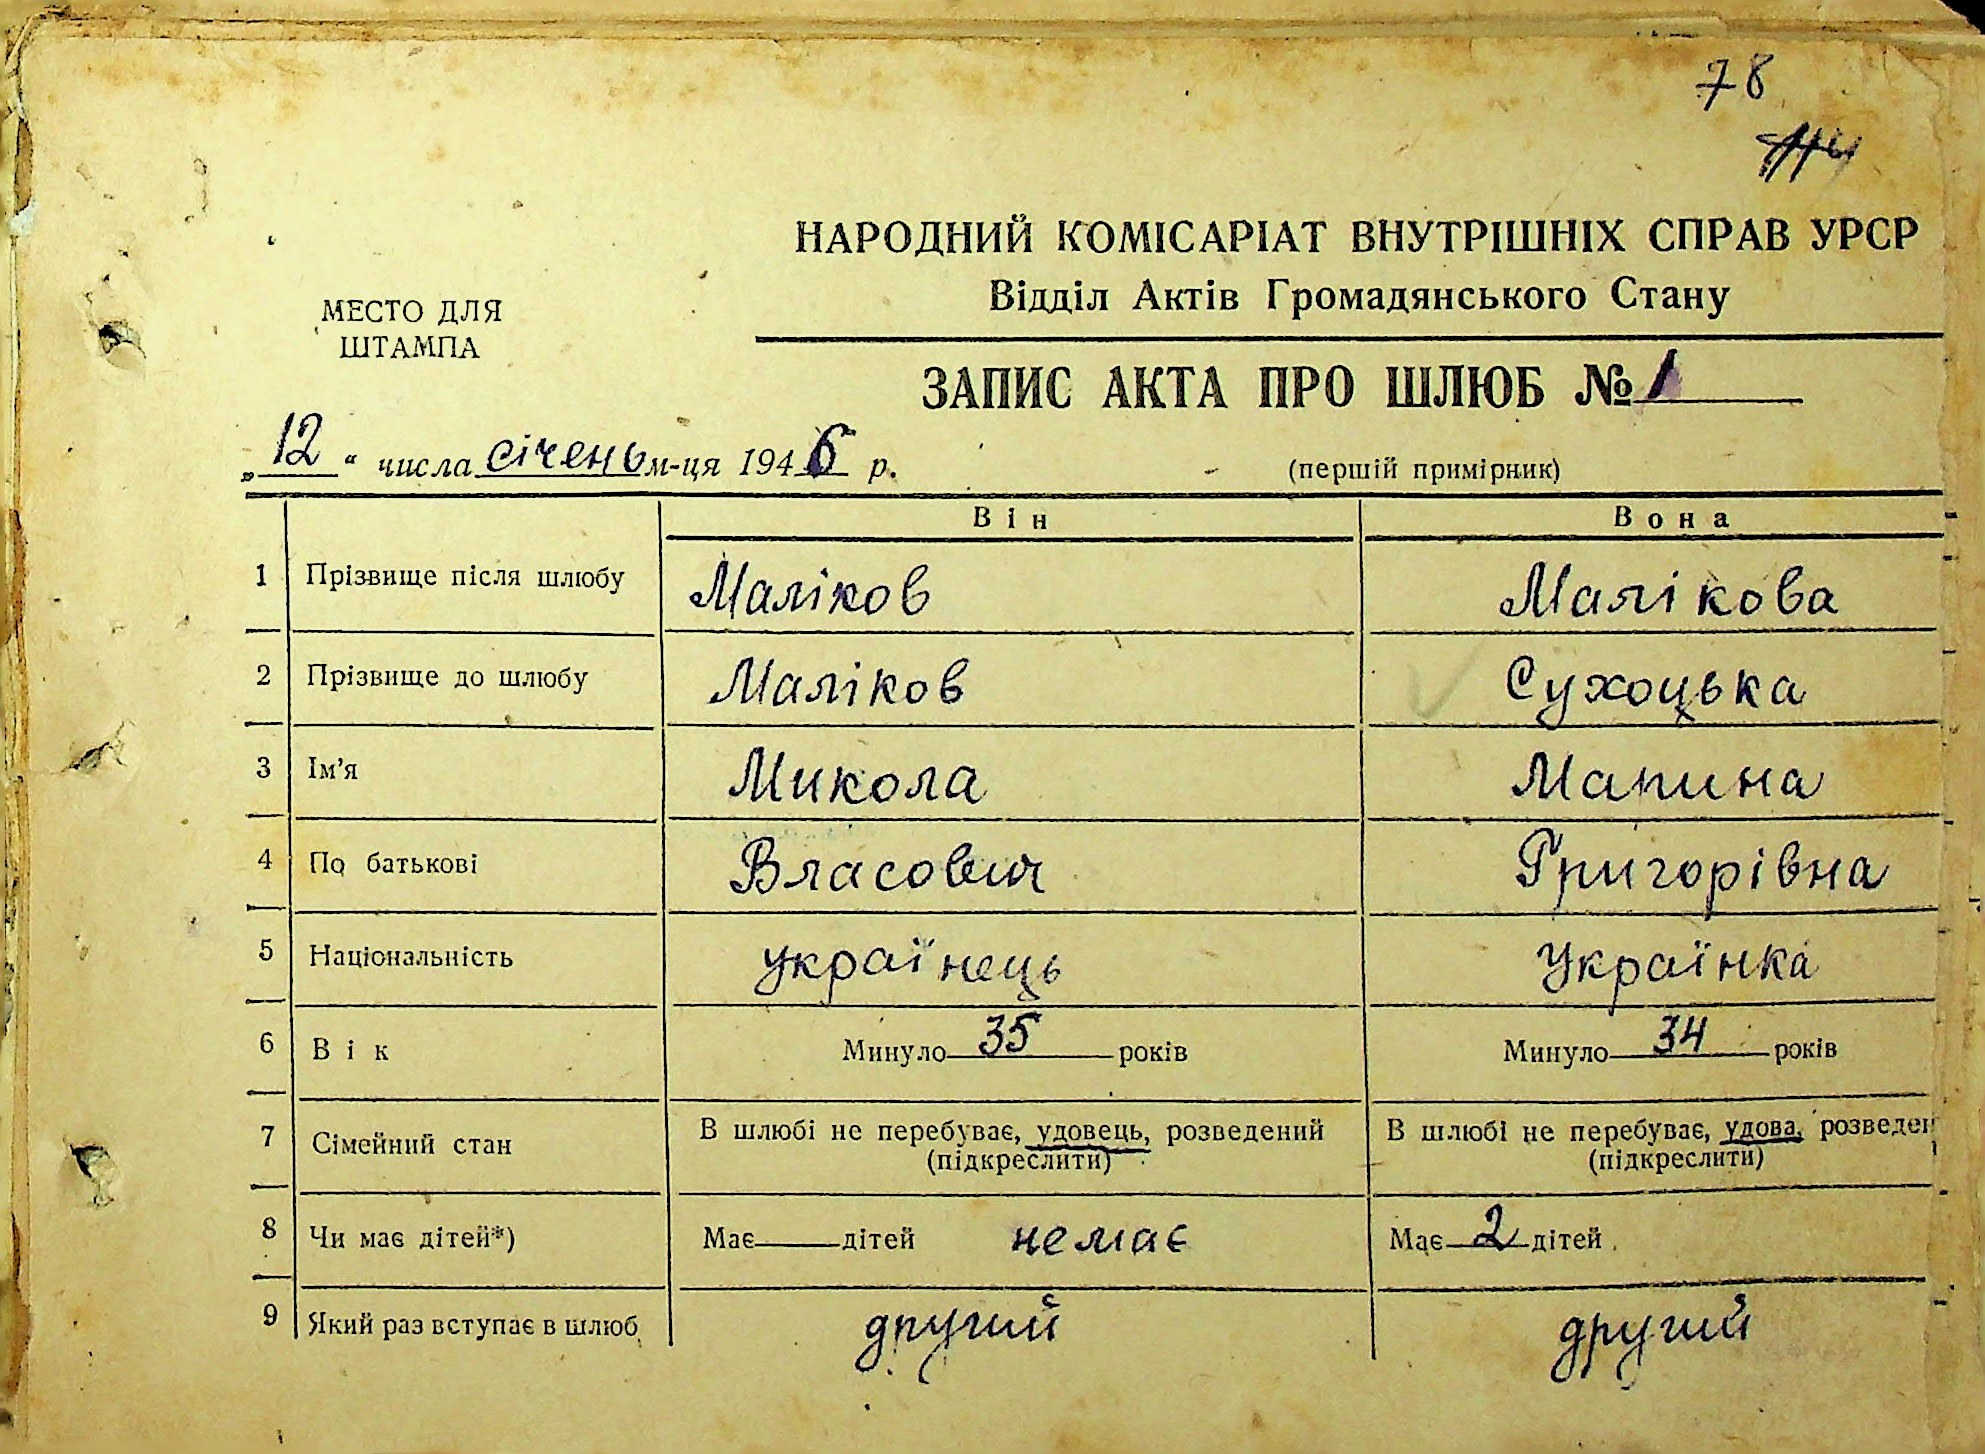 78
НАРОДНИЙ КОМІСАРІАТ ВНУТРІШНІХ СПРАВ УРСР
Відділ Актів Громадянського Стану
МЕСТО ДЛЯ
ШТАМПА
ЗАПИС АКТА ПРО ШЛЮБ № 1
„12“ числа січень м-ця 1946 р.
(першій примірник)
Він Вона
1 Прізвище після шлюбу Маліков Малікова
2 Прізвище до шлюбу Маліков Сухоцька
3 Ім'я Микола Марина
4 По батькові Власович Григорівна
5 Національність українець Українка
6 Вік Минуло 35 років Минуло 34 років
7 Сімейний стан В шлюбі не перебуває, удовець, розведений В шлюбі не перебуває, удова, розведен
(підкреслити) (підкреслити)
8 Чи має дітей*) Має дітей немає Має 2 дітей
9 Який раз вступає в шлюб другий другий